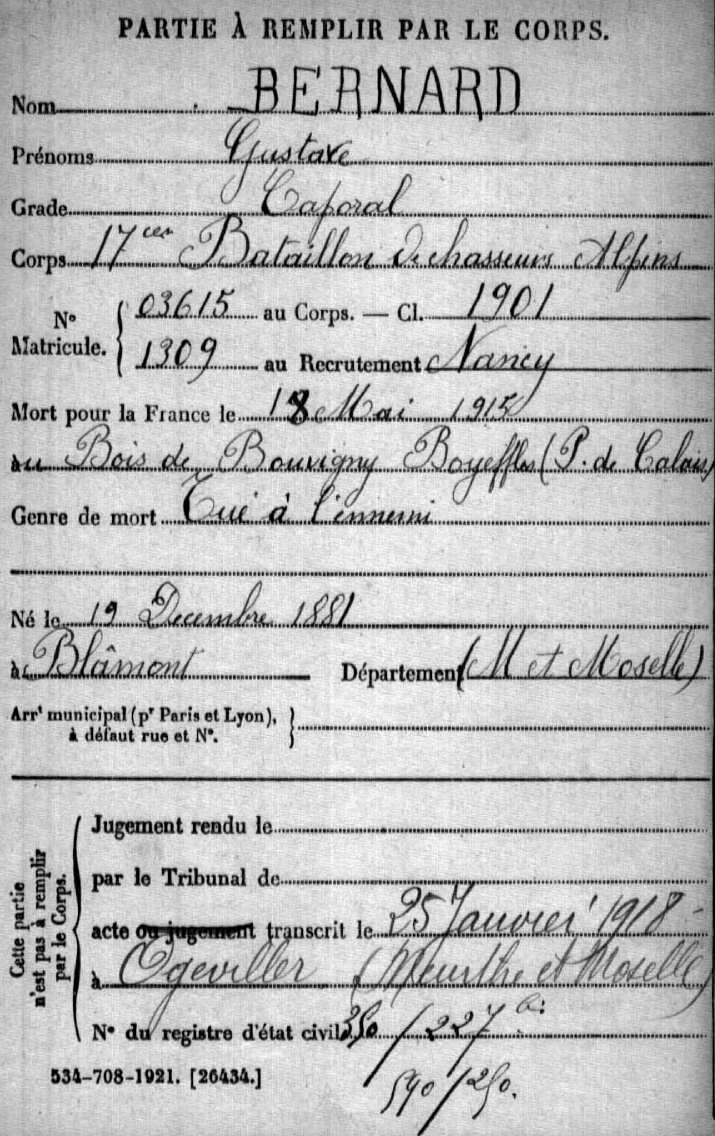 PARTIE À REMPLIR PAR LE CORPS.
Nom BERNARD
Prénoms Gustave
Grade Caporal
Corps 17ème Bataillon de chasseurs Alpins
N° Matricule. { 03615 au Corps. — Cl. 1901
1309 au Recrutement Nancy
Mort pour la France le 18 Mai 1915
au Bois de Bouvigny Boyeffles (P. de Calais)
Genre de mort Tué à l'ennemi
Né le 19 Decembre 1881
à Blâmont Département (M et Moselle)
Arrt municipal (pr Paris et Lyon),
à défaut rue et N°.
Cette partie n'est pas à remplir par le Corps.
Jugement rendu le
par le Tribunal de
acte ou jugement transcrit le 25 Janvier 1918
à Ogeviller (Meurthe et Moselle)
N° du registre d'état civil 350/227
534-708-1921. [26434.]
590/250.